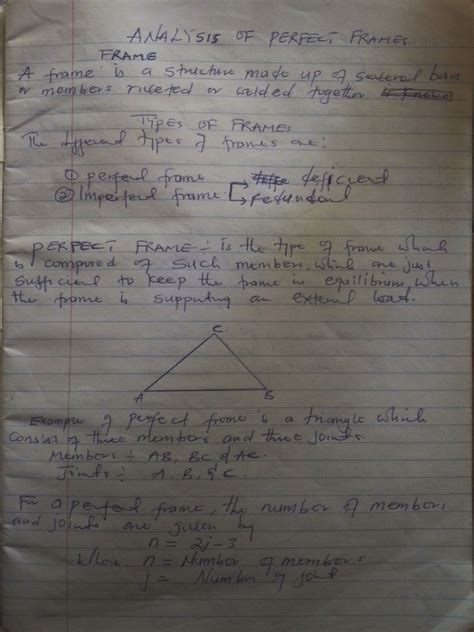 ANALYSIS OF PERFECT FRAMES.
FRAME
A frame is a structure made up of several bars
or members riveted or welded together is known
TYPES OF FRAMES
The different types of frames are;
① perfect frame deficient
② Imperfect frame redundant
PERFECT FRAME ÷ is the type of frame which
is composed of such members, which are just
sufficient to keep the frame in equilibrium, when
the frame is supporting an external load.
C.
A B
Example of perfect frame is a triangle which
consist of three members and three joints.
Members ÷ AB, BC & AC.
Joints ÷ A, B, & C
For a perfect frame, the number of members
and joints are given by
n = 2j - 3
n = Number of members
j = Number of joint